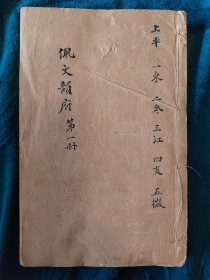 上平 一東 二冬 三江 四支 五微
佩文韻府 第一册